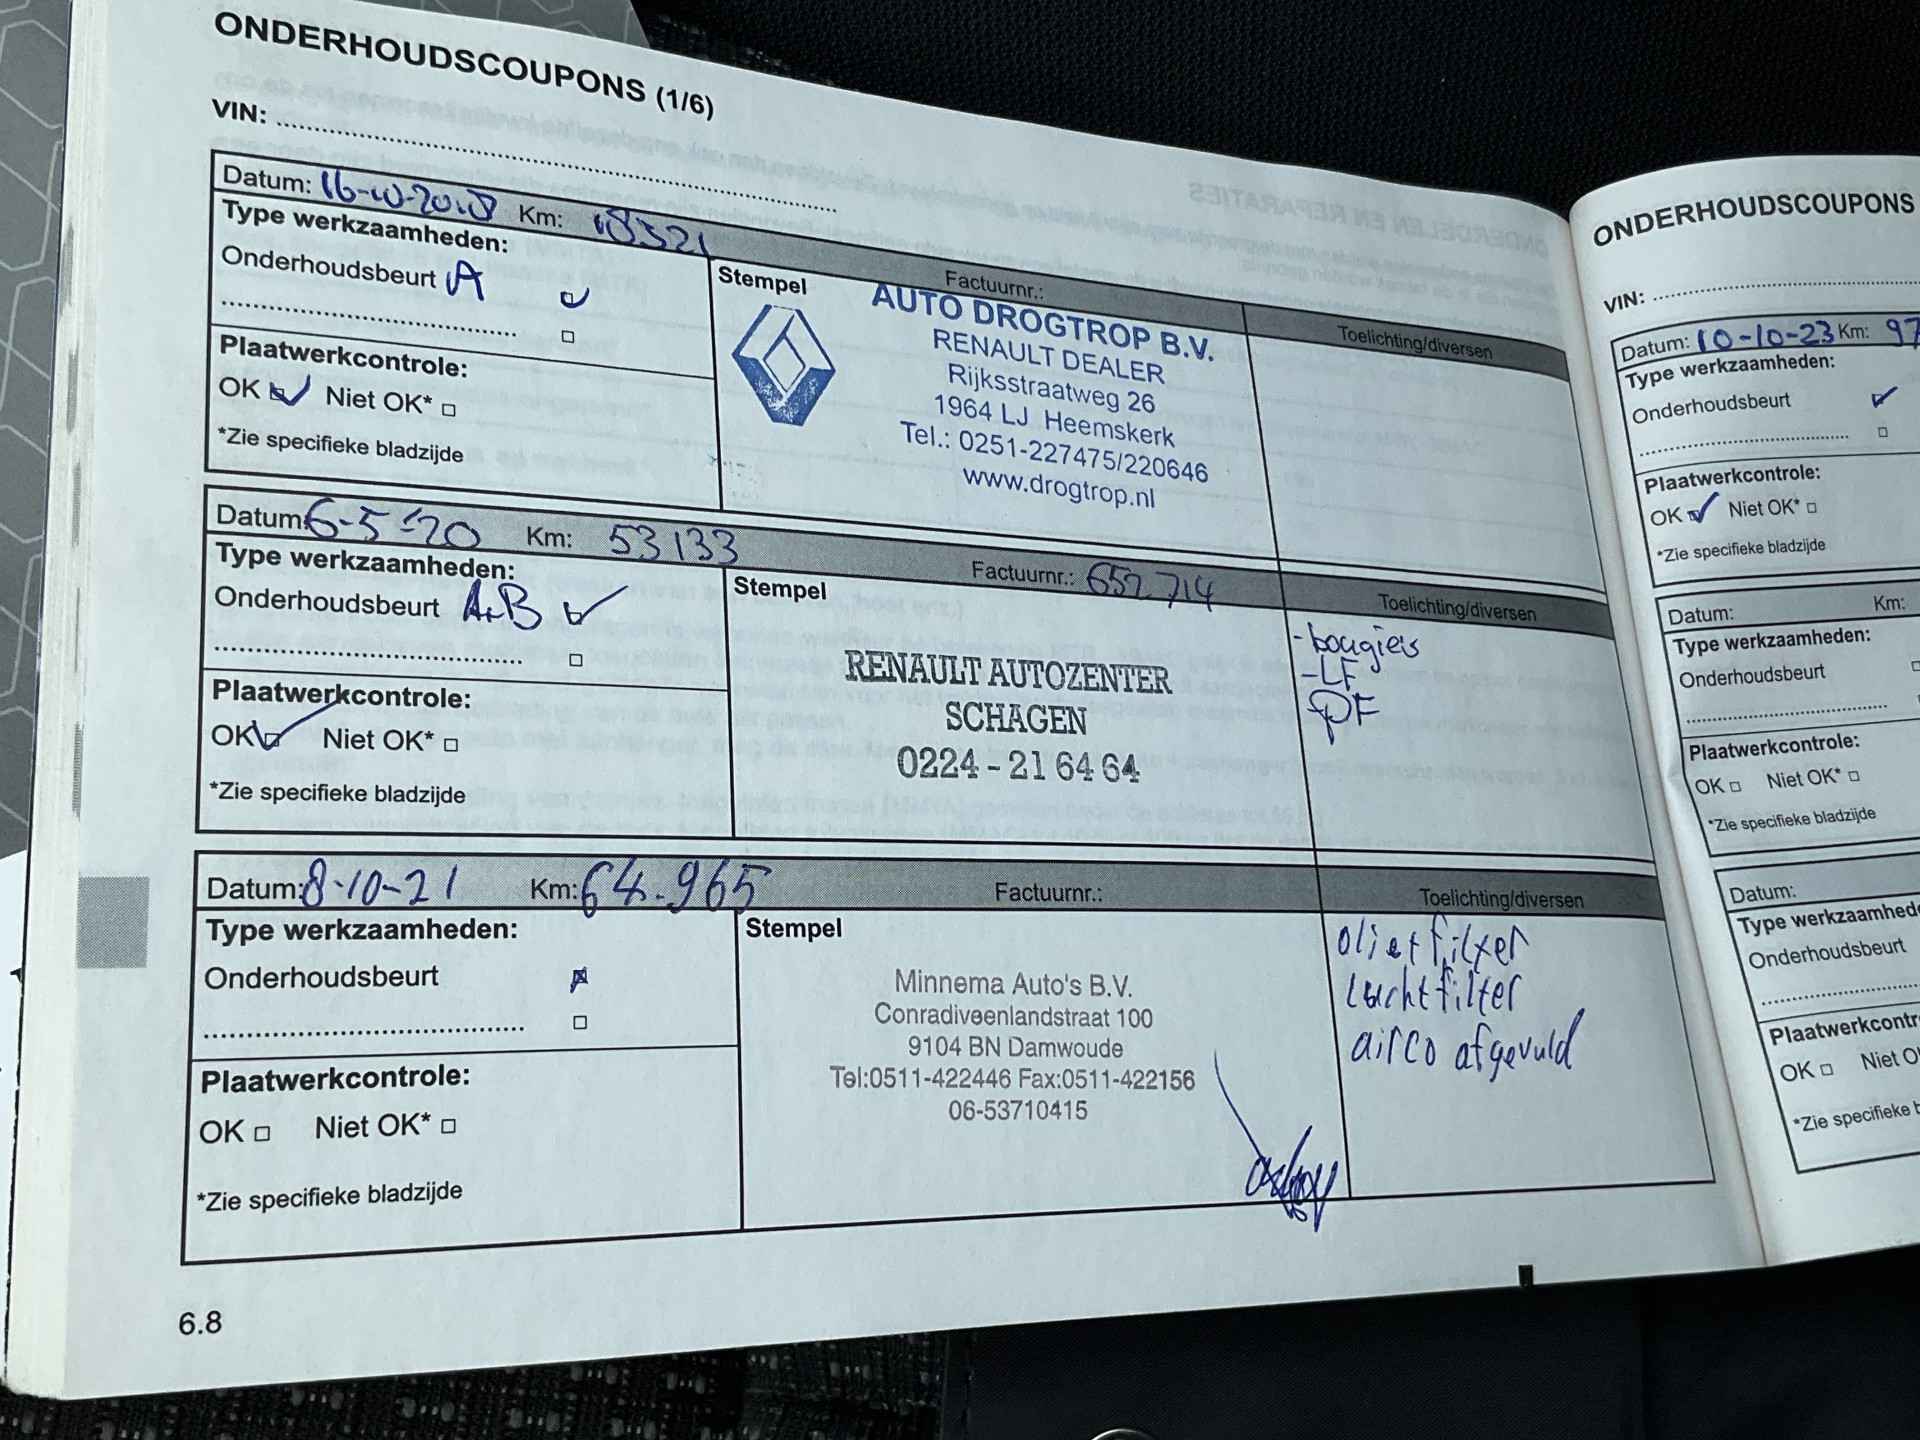 ONDERHOUDSCOUPONS (1/6)
VIN:
Datum: 16-10-2018 Km: 18321
Factuurnr.:
Type werkzaamheden:
Onderhoudsbeurt A
Plaatwerkcontrole:
OK Niet OK*
*Zie specifieke bladzijde
Stempel
AUTO DROGTROP B.V.
RENAULT DEALER
Rijksstraatweg 26
1964 LJ Heemskerk
Tel.: 0251-227475/220646
www.drogtrop.nl
Toelichting/diversen
Datum: 6-5-'20 Km: 53133
Factuurnr.: 652714
Type werkzaamheden:
Onderhoudsbeurt A+B
Plaatwerkcontrole:
OK Niet OK*
*Zie specifieke bladzijde
Stempel
RENAULT AUTOZENTER
SCHAGEN
0224-216464
Toelichting/diversen
-bougies
-LF
PF
Datum: 8-10-21 Km: 64.965
Factuurnr.:
Type werkzaamheden:
Onderhoudsbeurt
Plaatwerkcontrole:
OK Niet OK*
*Zie specifieke bladzijde
Stempel
Minnema Auto's B.V.
Conradiveenlandstraat 100
9104 BN Damwoude
Tel:0511-422446 Fax:0511-422156
06-53710415
Toelichting/diversen
oliet filter
luchtfilter
airco afgevuld
6.8
ONDERHOUDSCOUPONS
VIN:
Datum: 10-10-23 Km: 97
Type werkzaamheden:
Onderhoudsbeurt
Plaatwerkcontrole:
OK Niet OK*
*Zie specifieke bladzijde
Datum: Km:
Type werkzaamheden:
Onderhoudsbeurt
Plaatwerkcontrole:
OK Niet OK*
*Zie specifieke bladzijde
Datum:
Type werkzaamhed
Onderhoudsbeurt
Plaatwerkcontr
OK Niet O
*Zie specifieke b